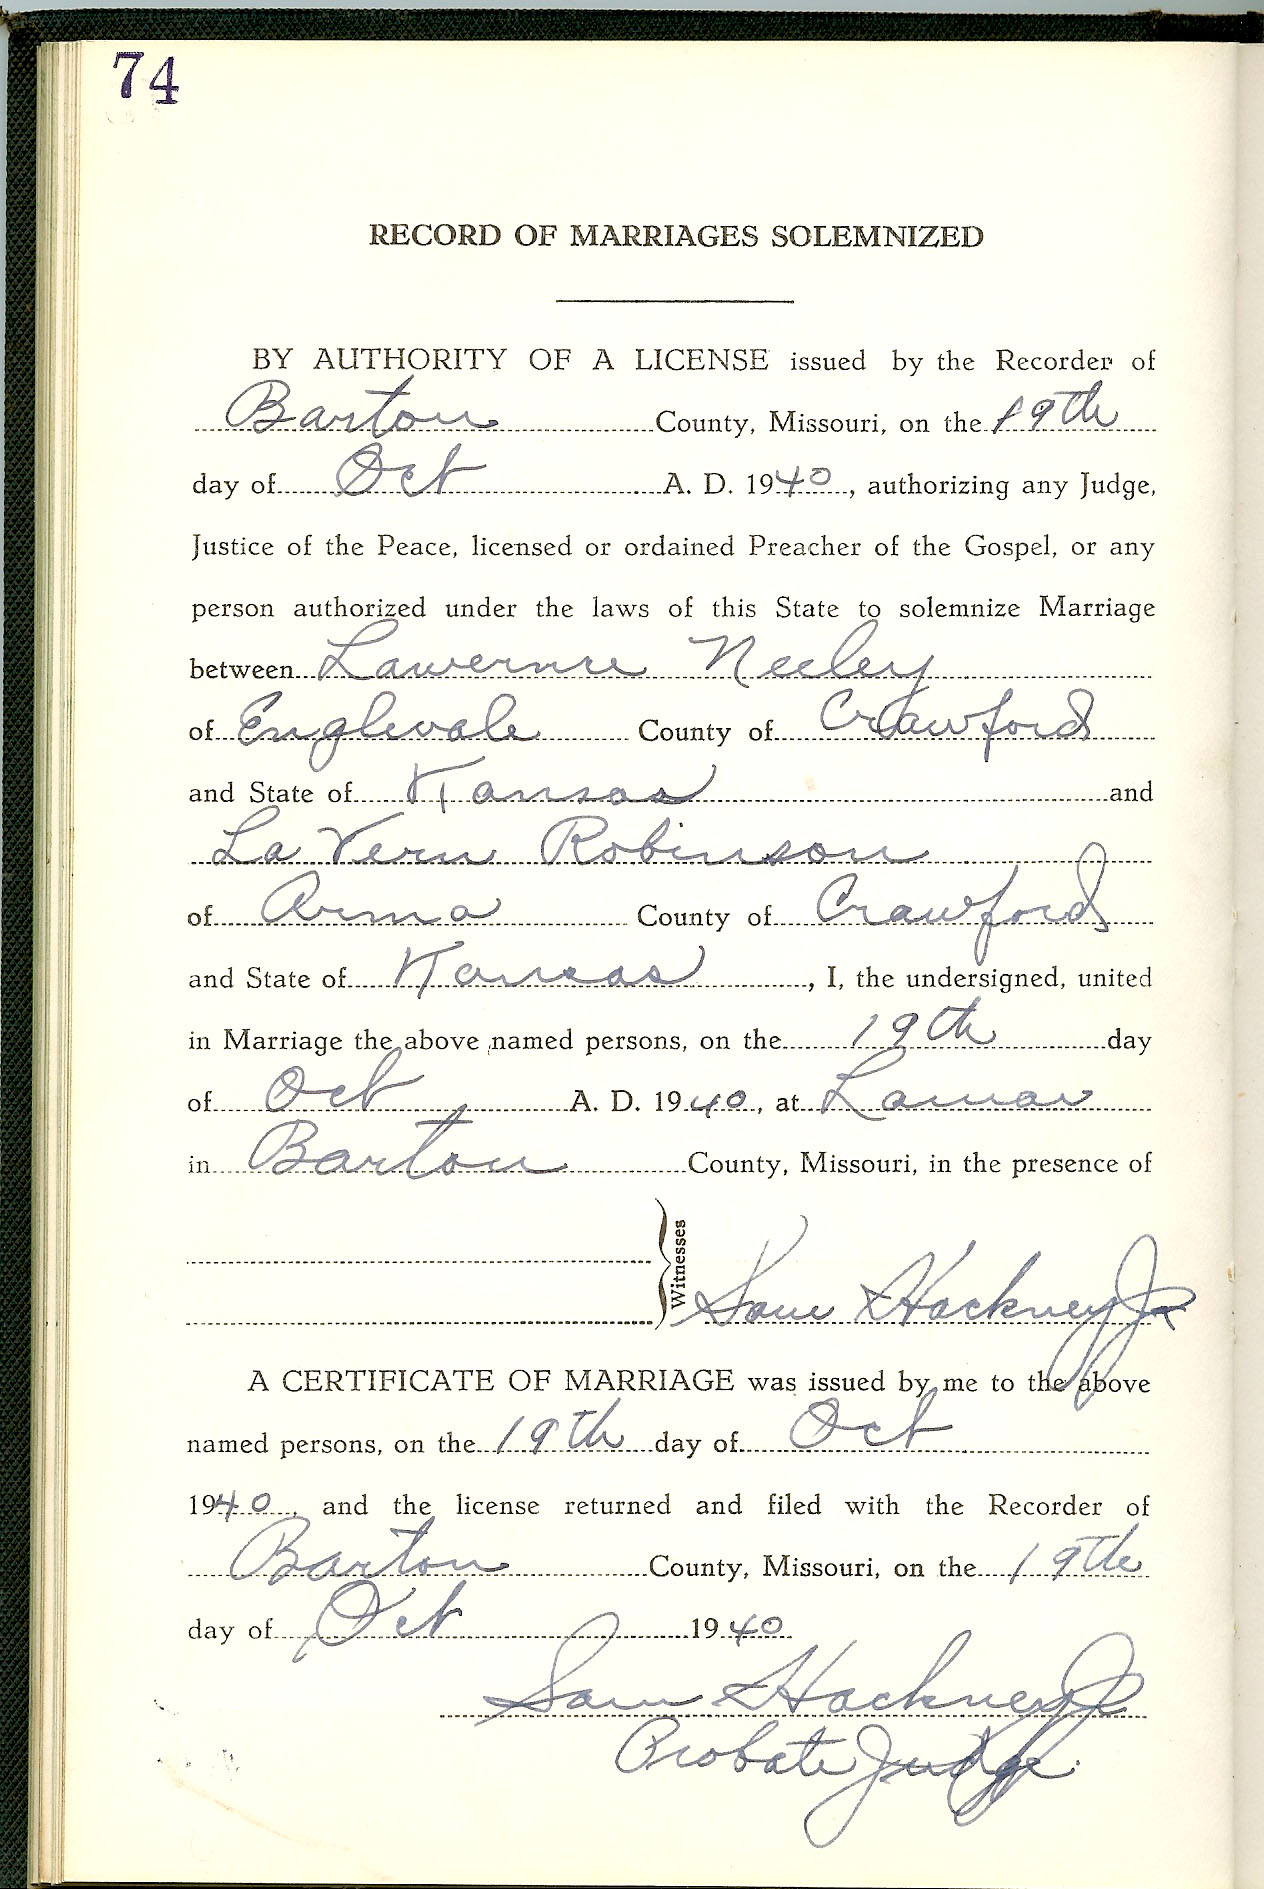 74
RECORD OF MARRIAGES SOLEMNIZED
BY AUTHORITY OF A LICENSE issued by the Recorder of
Barton County, Missouri, on the 19th
day of Oct A. D. 1940, authorizing any Judge,
Justice of the Peace, licensed or ordained Preacher of the Gospel, or any
person authorized under the laws of this State to solemnize Marriage
between Lawernce Neeley
of Englevale County of Crawford
and State of Kansas and
La Vern Robinson
of Arma County of Crawford
and State of Kansas, I, the undersigned, united
in Marriage the above named persons, on the 19th day
of Oct A. D. 1940, at Lamar
in Barton County, Missouri, in the presence of
Witnesses
Sam Hackney Jr
A CERTIFICATE OF MARRIAGE was issued by me to the above
named persons, on the 19th day of Oct
1940, and the license returned and filed with the Recorder of
Barton County, Missouri, on the 19th
day of Oct 1940
Sam Hackney Jr
Probate Judge